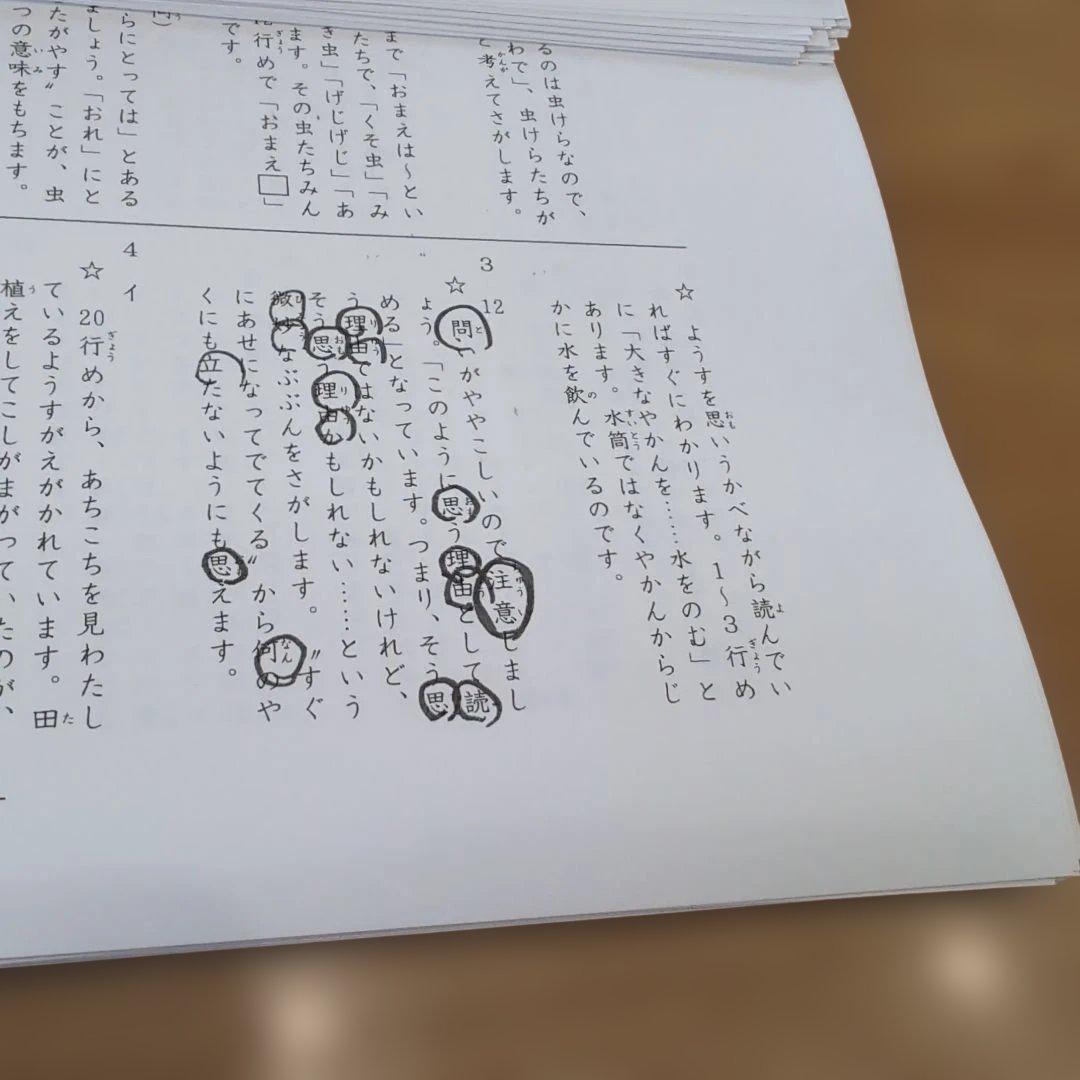 るのは虫けらなので、
わで」、虫けらたちが
考えてさがします。
まで「おまえは～とい
たちで、「くそ虫」「み
き虫」「げじげじ」「あ
ます。その虫たちみん
行めで「おまえ□」
です。
らにとっては」とある
ましょう。「おれ」にと
たがやす〟ことが、虫
つの意味をもちます。
☆ ようすを思いうかべながら読んでい
ればすぐにわかります。1～3行め
に「大きなやかんを……水をのむ」と
あります。水筒ではなくやかんからじ
かに水を飲んでいるのです。
3 12
☆ 問いがややこしいので注意しまし
ょう。「このように思う理由として読
める」となっています。つまり、そう思
う理由ではないかもしれないけれど、
そう思う理由かもしれない……という
微妙なぶぶんをさがします。〝すぐ
にあせになってでてくる〟から何のや
くにも立たないようにも思えます。
4 イ
☆ 20行めから、あちこちを見わたし
ているようすがえがかれています。田
植えをしてこしがまがっていたのが、